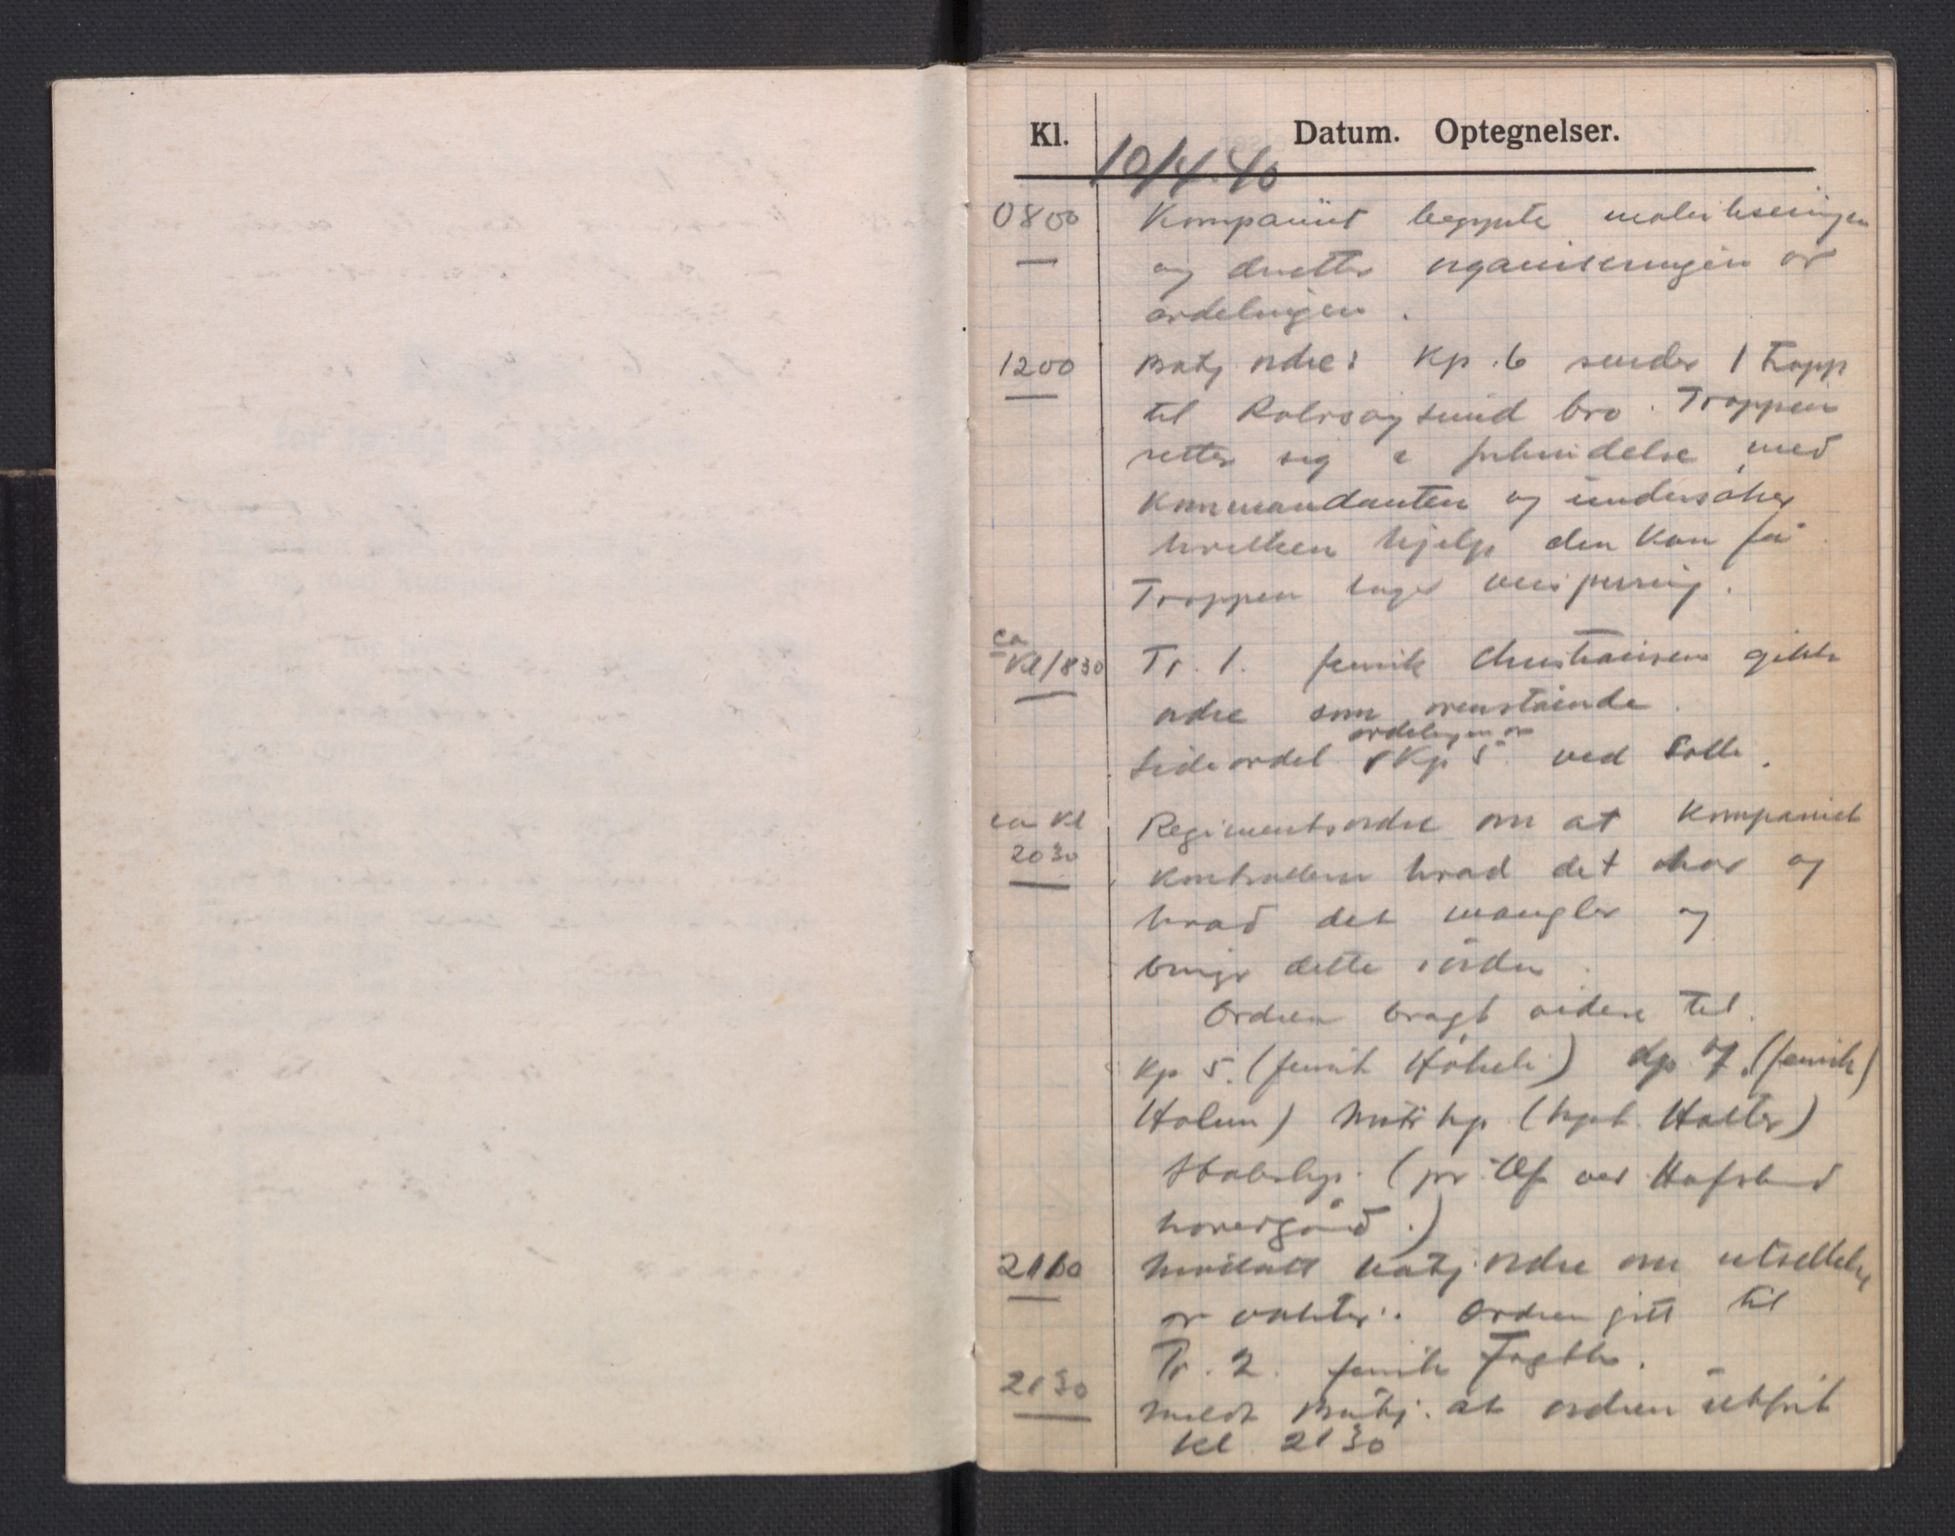 Kl. Datum. Optegnelser.
10/4.40
0800 Kompaniet begynte mobiliseringen
og deretter organiseringen av
avdelingen.
1200 Batj ordre: Kp. 6 sender 1 tropp
til Rolvsøysund bro. Troppen
setter sig i forbindelse med
Kommandanten og undersøker
hvilken hjelp den kan få.
Troppen lager veisperring.
ca
Kl 1830 Tr. 1. fenrik Christiansen gikk
ordre som ovenstående.
avdelingen av
Sideavdel Kp 5 ved Solli.
ca Kl Regimentsordre om at Kompaniet
2030 kontrollerer hvad det har og
hvad det mangler og
bringe dette i orden.
Ordren bragt videre til
Kp 5. (fenrik) Kp. 7. (fenrik)
Holum) Mitr kp (kpt. Holter)
Stabskp. (pr. ved Hafslund
hovedgård.)
2100 Mottatt batj. ordre om utsettelse
av vakter. Ordren gitt til
Tr. 2. fenrik
2130 Meldt Batj. at ordren utført
kl. 2130